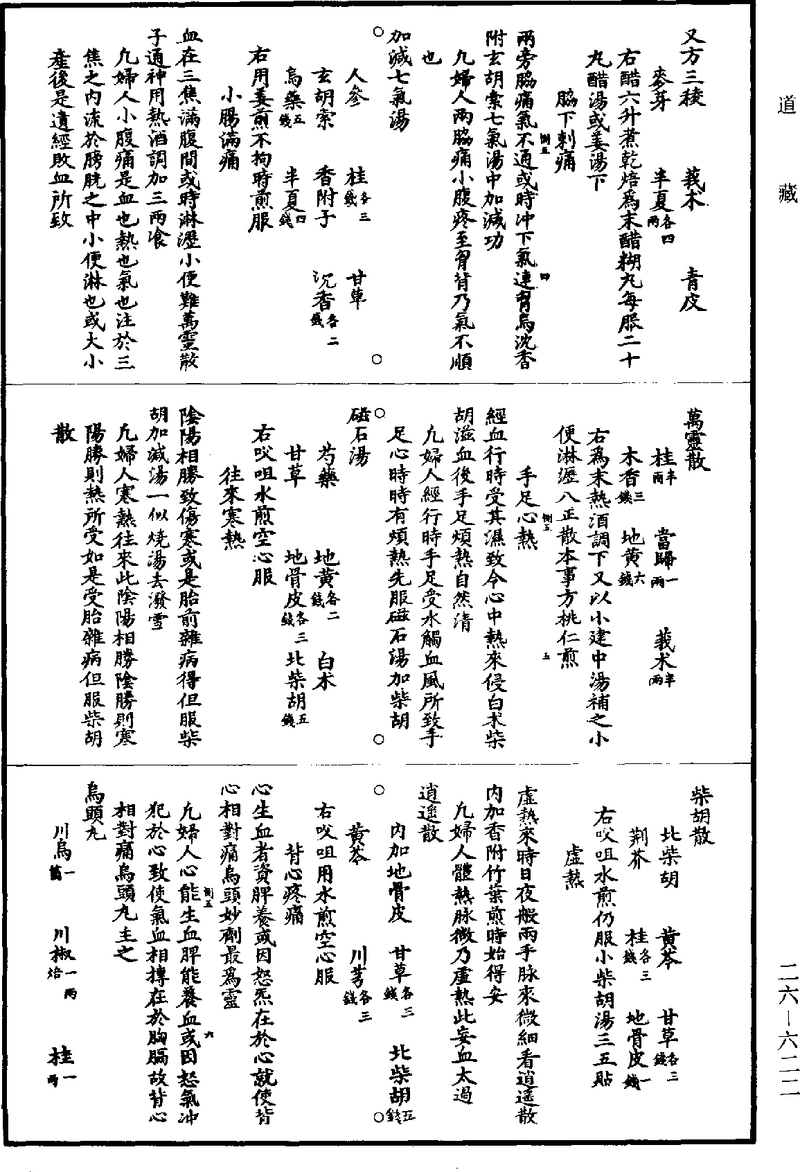 道藏
又方三稜 莪朮 青皮
麥芽 半夏各四兩
右醋六升煮乾焙爲末醋糊丸每服二十
丸醋湯或姜湯下
脇下刺痛
兩旁脇痛氣不通或時沖下氣連胷烏沈香
附玄胡索七氣湯中加減功
凢婦人兩脇痛小腹疼至胷背乃氣不順
也
加減七氣湯
人參 桂各三錢 甘草
玄胡索 香附子 沉香各二錢
烏藥五錢 半夏四錢
右用姜煎不拘時煎服
小腸滿痛
血在三焦滿腹間或時淋瀝小便難萬靈散
子通神用熱酒調加三兩飡
凢婦人小腹痛是血也熱也氣也注於三
焦之內流於膀胱之中小便淋也或大小
產後是遺經敗血所致
萬靈散
桂半兩 當歸一兩 莪朮半兩
木香三錢 地黃六錢
右爲末熱酒調下又以小建中湯補之小
便淋瀝八正散本事方桃仁煎
手足心熱
經血行時受其濕致令心中熱來侵白朮柴
胡滋血後手足煩熱自然清
凢婦人經行時手足受水觸血風所致手
足心時時有煩熱先服磁石湯加柴胡
磁石湯
芍藥 地黃各二錢 白朮
甘草 地骨皮各三錢 北柴胡五錢
右㕮咀水煎空心服
往來寒熱
陰陽相勝致傷寒或是胎前雜病得但服柴
胡加減湯一似燒湯去潑雪
凢婦人寒熱往來此陰陽相勝陰勝則寒
陽勝則熱所受如是受胎雜病但服柴胡
散
柴胡散
北柴胡 黃芩 甘草各三錢
荆芥 桂各三錢 地骨皮一錢
右㕮咀水煎仍服小柴胡湯三五貼
虛熱
虛熱來時日夜般兩手脉來微細看逍遙散
內加香附竹葉煎時始得安
凢婦人體熱脉微乃虛熱此妄血太過
逍遙散
內加地骨皮 甘草各三錢 北柴胡五錢
黃芩 川芎各三錢
右㕮咀用水煎空心服
背心疼痛
心生血者資脾養或因怒炁在於心就使背
心相對痛烏頭妙劑最爲靈
凢婦人心能生血脾能養血或因怒氣沖
犯於心致使氣血相摶在於胸膈故背心
相對痛烏頭丸主之
烏頭丸
川烏一 川椒一兩焙 桂一兩
二六—六二二